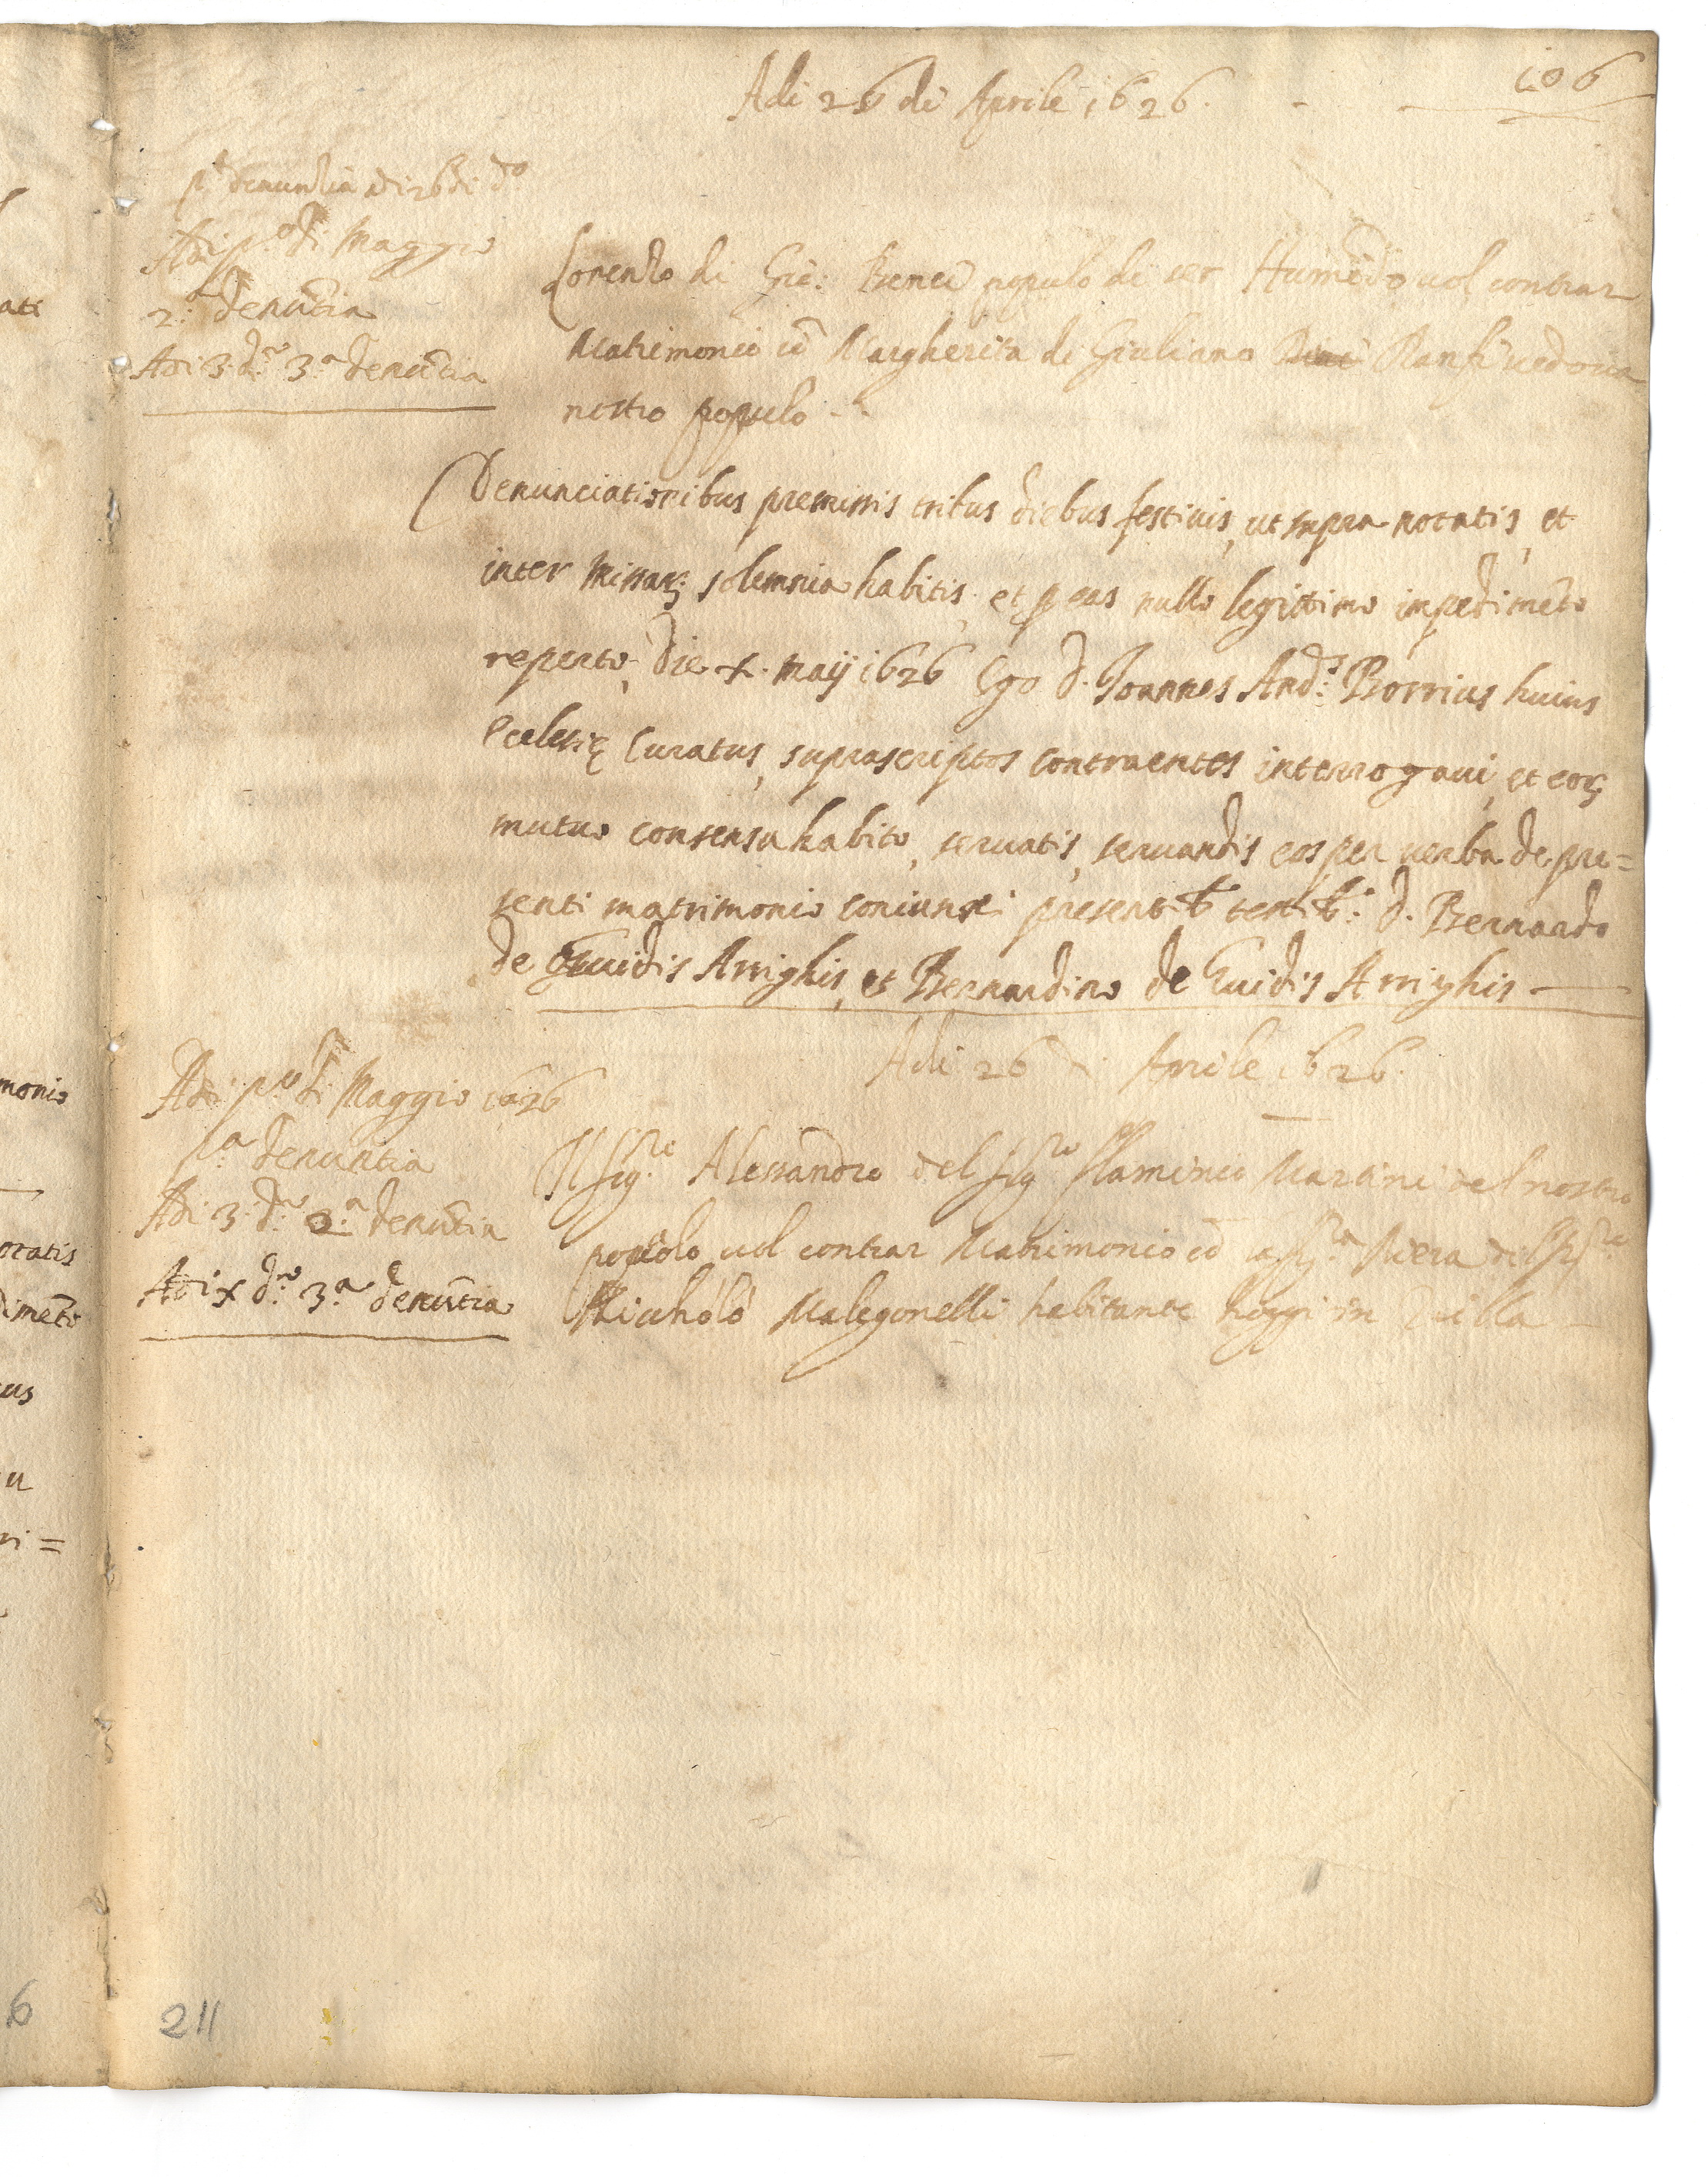 106
Adi 26 di Aprile 1626.
pa denuntia adi 26 di do
Adi po di Maggio
2.a denūtia
Adi 3 do 3.a denūtia
Lorenzo di Gio: Benci populo di ser Humido uol contrar
Matrimonio cō Margherita di Giuliano Ranfi uedoua
nostro populo
Denunciationibus premissis tribus diebus festiuis, ut supra notatis, et
inter Missarꝫ solemnia habitis, et p eas nullo legittimo impedimēto
reperto, die x. maij 1626 Ego d. Joannes And.s Borrius huius
Ecclesię Curatus, suprascriptos contraentes interrogaui, et eorꝫ
mutuo consensu habito, seruatis, seruandis eos per uerba de pre=
senti matrimonio coniunxi presentib testib: d. Bernardo
de Guidis Arrighis, et Bernardino de Guidis Arrighis
Adi 26 Aprile 1626.
Adi po di Maggio 1626
pa denuntia
Adi 3 do 2.a denūtia
Adi x do 3.a denūtia
Il sig.re Alessandro del sig.re flaminio Martini del nostro
popolo uol contrar Matrimonio cō la sig.ra piera del sig.re
Nicholò Malegonelli habitante hoggi in Villa
211
monio
otatis
dimēto
us
u
ri =
6